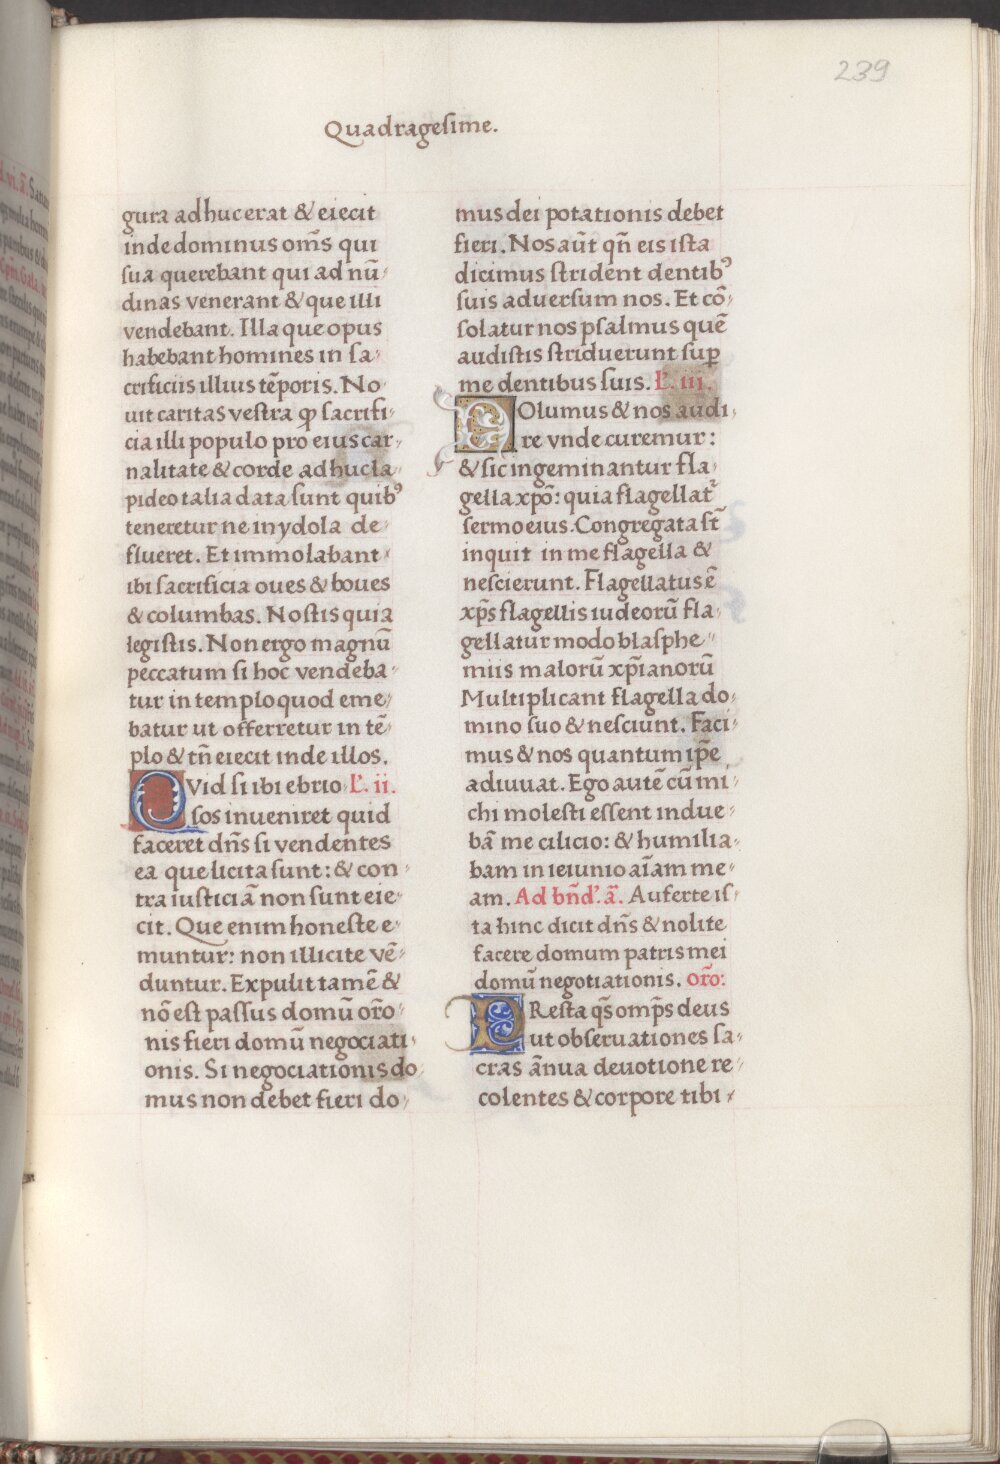 239
Quadragesime.
gura adhuc erat & eiecit
inde dominus om̃s qui
sua querebant qui ad nū-
dinas venerant & que illi
vendebant. Illa que opus
habebant homines in sa-
crificiis illius tēporis. No-
uit caritas vestra ꝙ sacrifi-
cia illi populo pro eius car-
nalitate & corde adhuc la-
pideo talia data sunt quibꝰ
teneretur ne in ydola de-
flueret. Et immolabant
ibi sacrificia oues & boues
& columbas. Nostis quia
legistis. Non ergo magnū
peccatum si hoc vendeba-
tur in templo quod eme-
batur ut offerretur in tē-
plo & tñ eiecit inde illos.
QVid si ibi ebrio- L'. ii.
sos inueniret quid
faceret dñs si vendentes
ea que licita sunt: & con-
tra iusticiā non sunt eie-
cit. Que enim honeste e-
muntur: non illicite vē-
duntur. Expulit tamē &
nō est passus domū or̃o-
nis fieri domū negociati-
onis. Si negociationis do-
mus non debet fieri do-
mus dei potationis debet
fieri. Nos aūt qñ eis ista
dicimus strident dentibꝰ
suis aduersum nos. Et cō-
solatur nos psalmus quē
audistis striduerunt suꝑ
me dentibus suis. L'. iii.
NOlumus & nos audi-
re vnde curemur:
& sic ingeminantur fla-
gella xpō: quia flagellat᷑
sermo eius. Congregata st̄
inquit in me flagella &
nescierunt. Flagellatus ē
xp̄s flagellis iudeorū fla-
gellatur modo blasphe-
miis malorū xp̄ianorū
Multiplicant flagella do-
mino suo & nesciunt. Faci-
mus & nos quantum ip̄e
adiuuat. Ego autē cū mi-
chi molesti essent indue-
bā me cilicio: & humilia-
bam in ieiunio aīam me-
am. Ad bñd'. ā. Auferte is-
ta hinc dicit dñs & nolite
facere domum patris mei
domū negotiationis. or̃o:
PResta qs̄ omp̄s deus
ut obseruationes sa-
cras ānua deuotione re-
colentes & corpore tibi